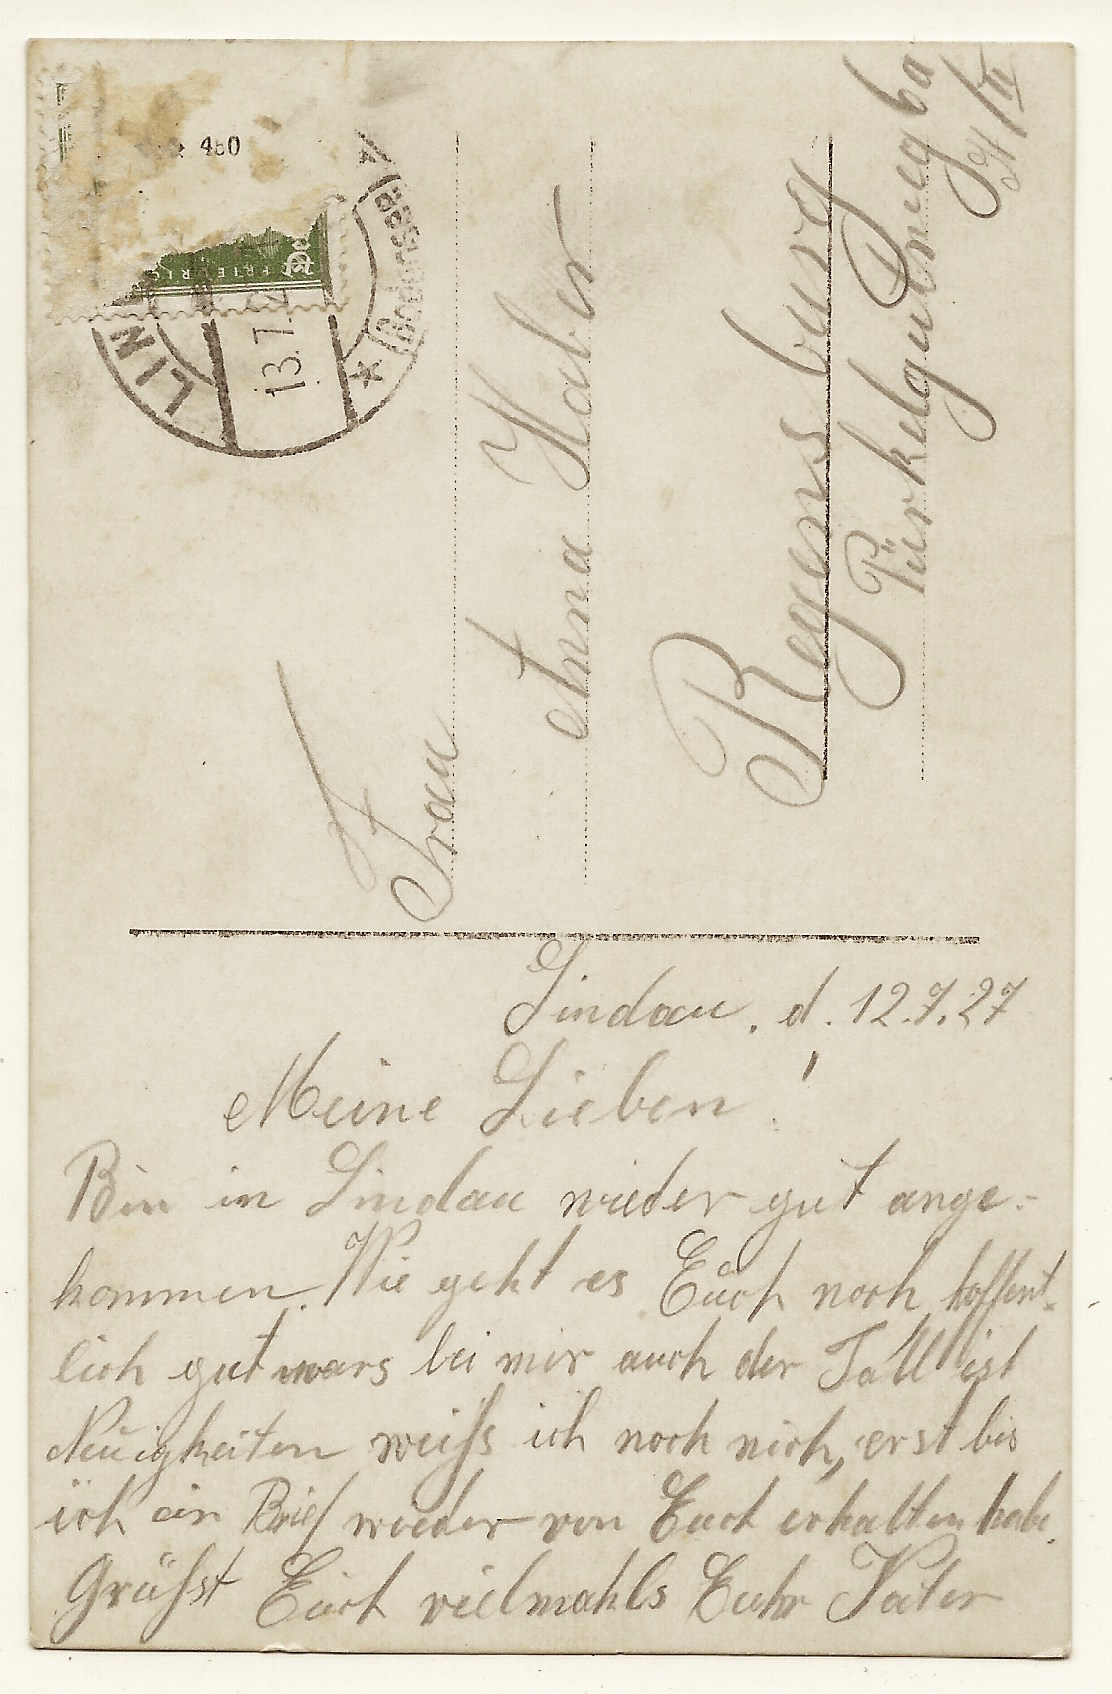 480
LIN
13.7.2
(Bodensee)
FRIEDRIC
Frau
Anna Haber
Regensburg
Pürkelgutweg 6a
II
Lindau, d. 12.7.27
Meine Lieben!
Bin in Lindau wieder gut ange-
kommen. Wie geht es Euch noch hoffent-
lich gut was bei mir auch der Fall ist
Neuigkeiten weiß ich noch nich, erst bis
ich ein Brief wieder von Euch erhalten habe.
Grüßst Euch vielmahls Euhr Vater